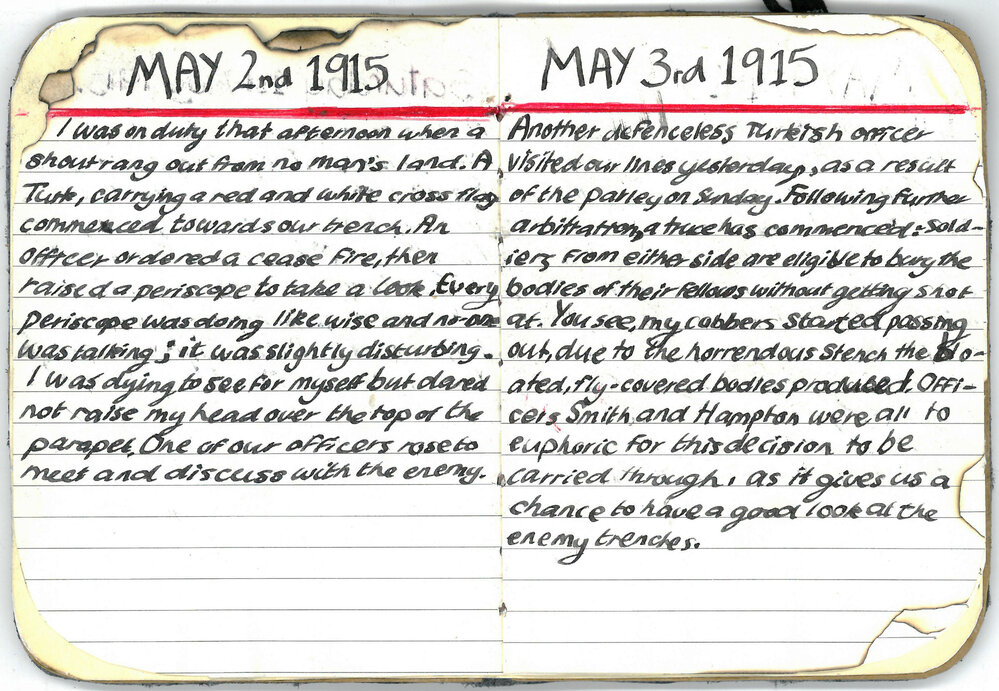 MAY 2nd 1915
I was on duty that afternoon when a
shout rang out from no man's land. A
Turk, carrying a red and white cross flag
commenced towards our trench. An
officer ordered a cease fire, then
raised a periscope to take a look. Every
periscope was doing like wise and no-one
was talking; it was slightly disturbing.
I was dying to see for myself but dared
not raise my head over the top of the
parapet. One of our officers rose to
meet and discuss with the enemy.
MAY 3rd 1915
Another defenceless Turkish officer
visited our lines yesterday, as a result
of the parley on Sunday. Following further
arbitration, a truce has commenced: sold-
iers from either side are eligible to bury the
bodies of their fellows without getting shot
at. You see, my cobbers started passing
out, due to the horrendous stench the blo-
ated, fly-covered bodies produced. Offi-
cers Smith and Hampton were all to
euphoric for this decision to be
carried through, as it gives us a
chance to have a good look at the
enemy trenches.